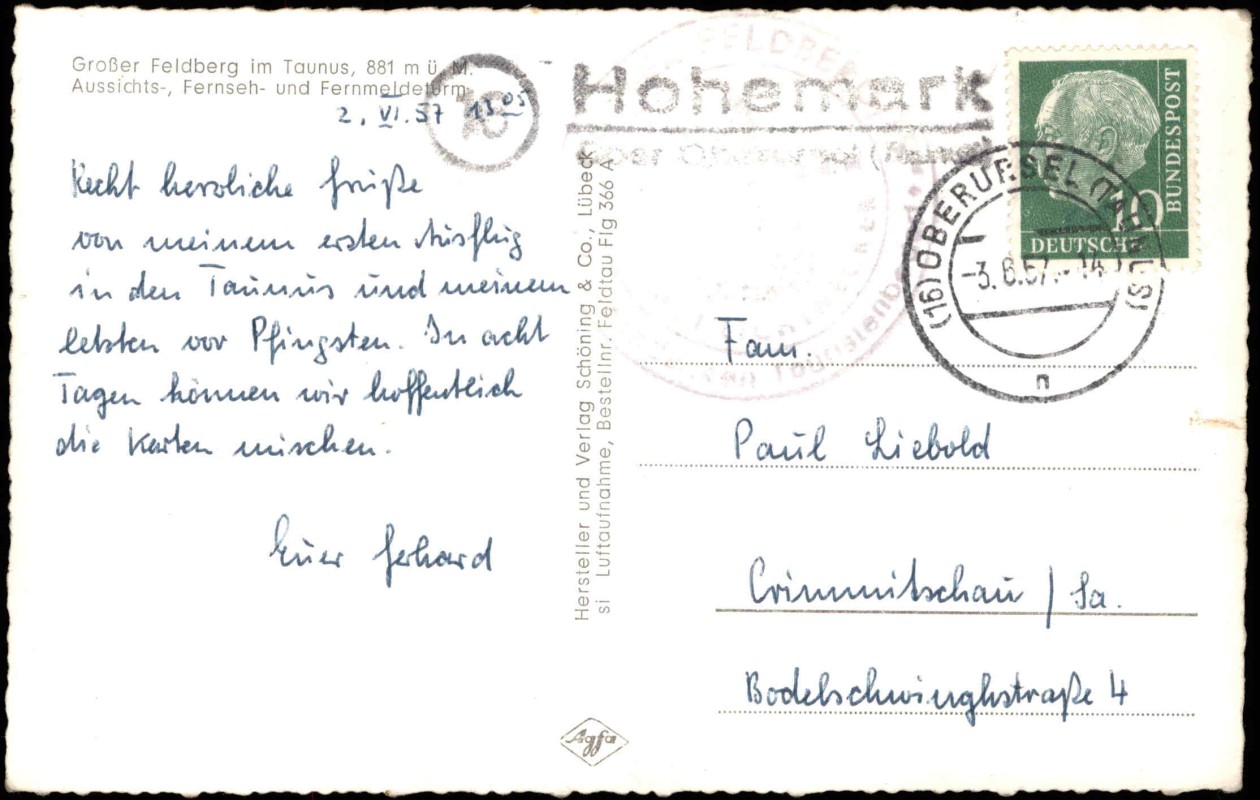 Großer Feldberg im Taunus, 881 m ü. M.
Aussichts-, Fernseh- und Fernmeldeturm
2. VI. 57 13 05
Recht herzliche Grüße
von meinem ersten Ausflug
in den Taunus und meinem
letzten vor Pfingsten. In acht
Tagen können wir hoffentlich
die Karten mischen.
Euer Gerhard
Hersteller und Verlag Schöning & Co., Lübeck
si Luftaufnahme, Bestellnr. Feldtau Flg 366 A
16
Hohemark
über Oberursel (Taunus)
FELDBERG
DEUTSCHE
BUNDESPOST
10
(16) OBERURSEL (TAUNUS)
-3.6.57.-14
n
Fam.
Paul Liebold
Crimmitschau / Sa.
Bodelschwinghstraße 4
Agfa